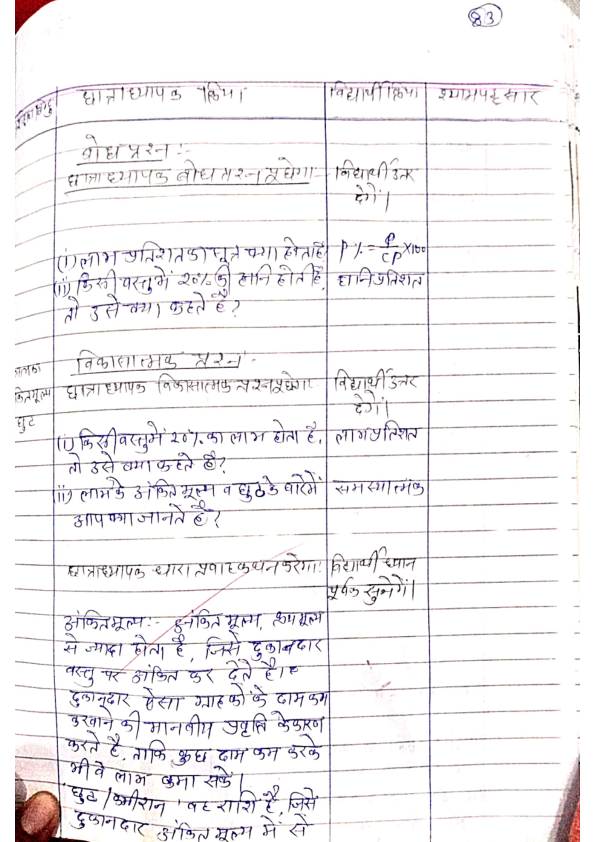 83
शिक्षण बिन्दु | छात्राध्यापक क्रिया | विद्यार्थी क्रिया | श्यामपट्ट सार
बोध प्रश्न :-
छात्राध्यापक बोध प्रश्न पूछेगा- | विद्यार्थी उत्तर
देगें।
(i) लाभ प्रतिशत का सूत्र क्या होता है | P % = P/CP × 100
(ii) किसी वस्तु में 20% की हानि होती है, | हानि प्रतिशत
तो उसे क्या कहते है?
विकासात्मक प्रश्न -
छात्राध्यापक विकासात्मक प्रश्न पूछेगा | विद्यार्थी उत्तर
अंकित मूल्य | देगें।
छुट
(i) किसी वस्तु में 20% का लाभ होता है, | लाभ प्रतिशत
तो उसे क्या कहते है?
(ii) लाभ के अंकित मूल्य व छुट के बारे में | समस्यात्मक
आप क्या जानते है?
छात्राध्यापक द्वारा प्रवाह कथन करेगा: | विद्यार्थी ध्यान
पूर्वक सुनेगें।
अंकित मूल्य :- अंकित मूल्य, क्रय मूल्य
से ज्यादा होता है, जिसे दुकानदार
वस्तु पर अंकित कर देते है।
दुकानदार ऐसा ग्राहको के दाम कम
करवाने की मानवीय प्रवृत्ति के कारण
करते है, ताकि कुछ दाम कम करके
भी वे लाभ कमा सके।
छुट / कमीशन वह राशि है, जिसे
दुकानदार अंकित मूल्य में से